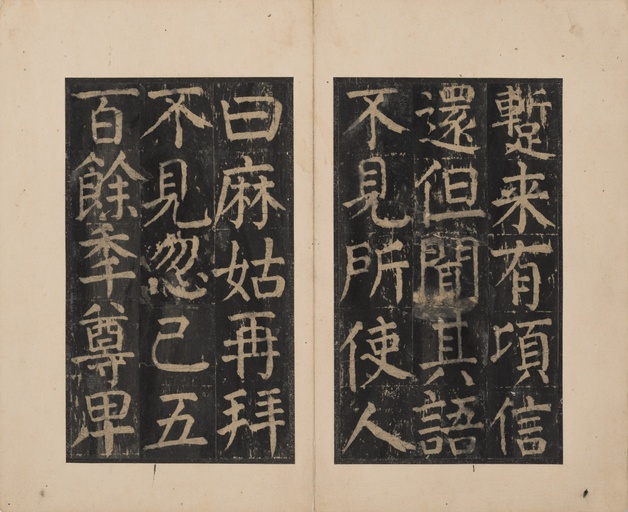 蹔来有頃信
還但聞其語
不見所使人
曰麻姑再拜
不見忽已五
百餘年尊卑